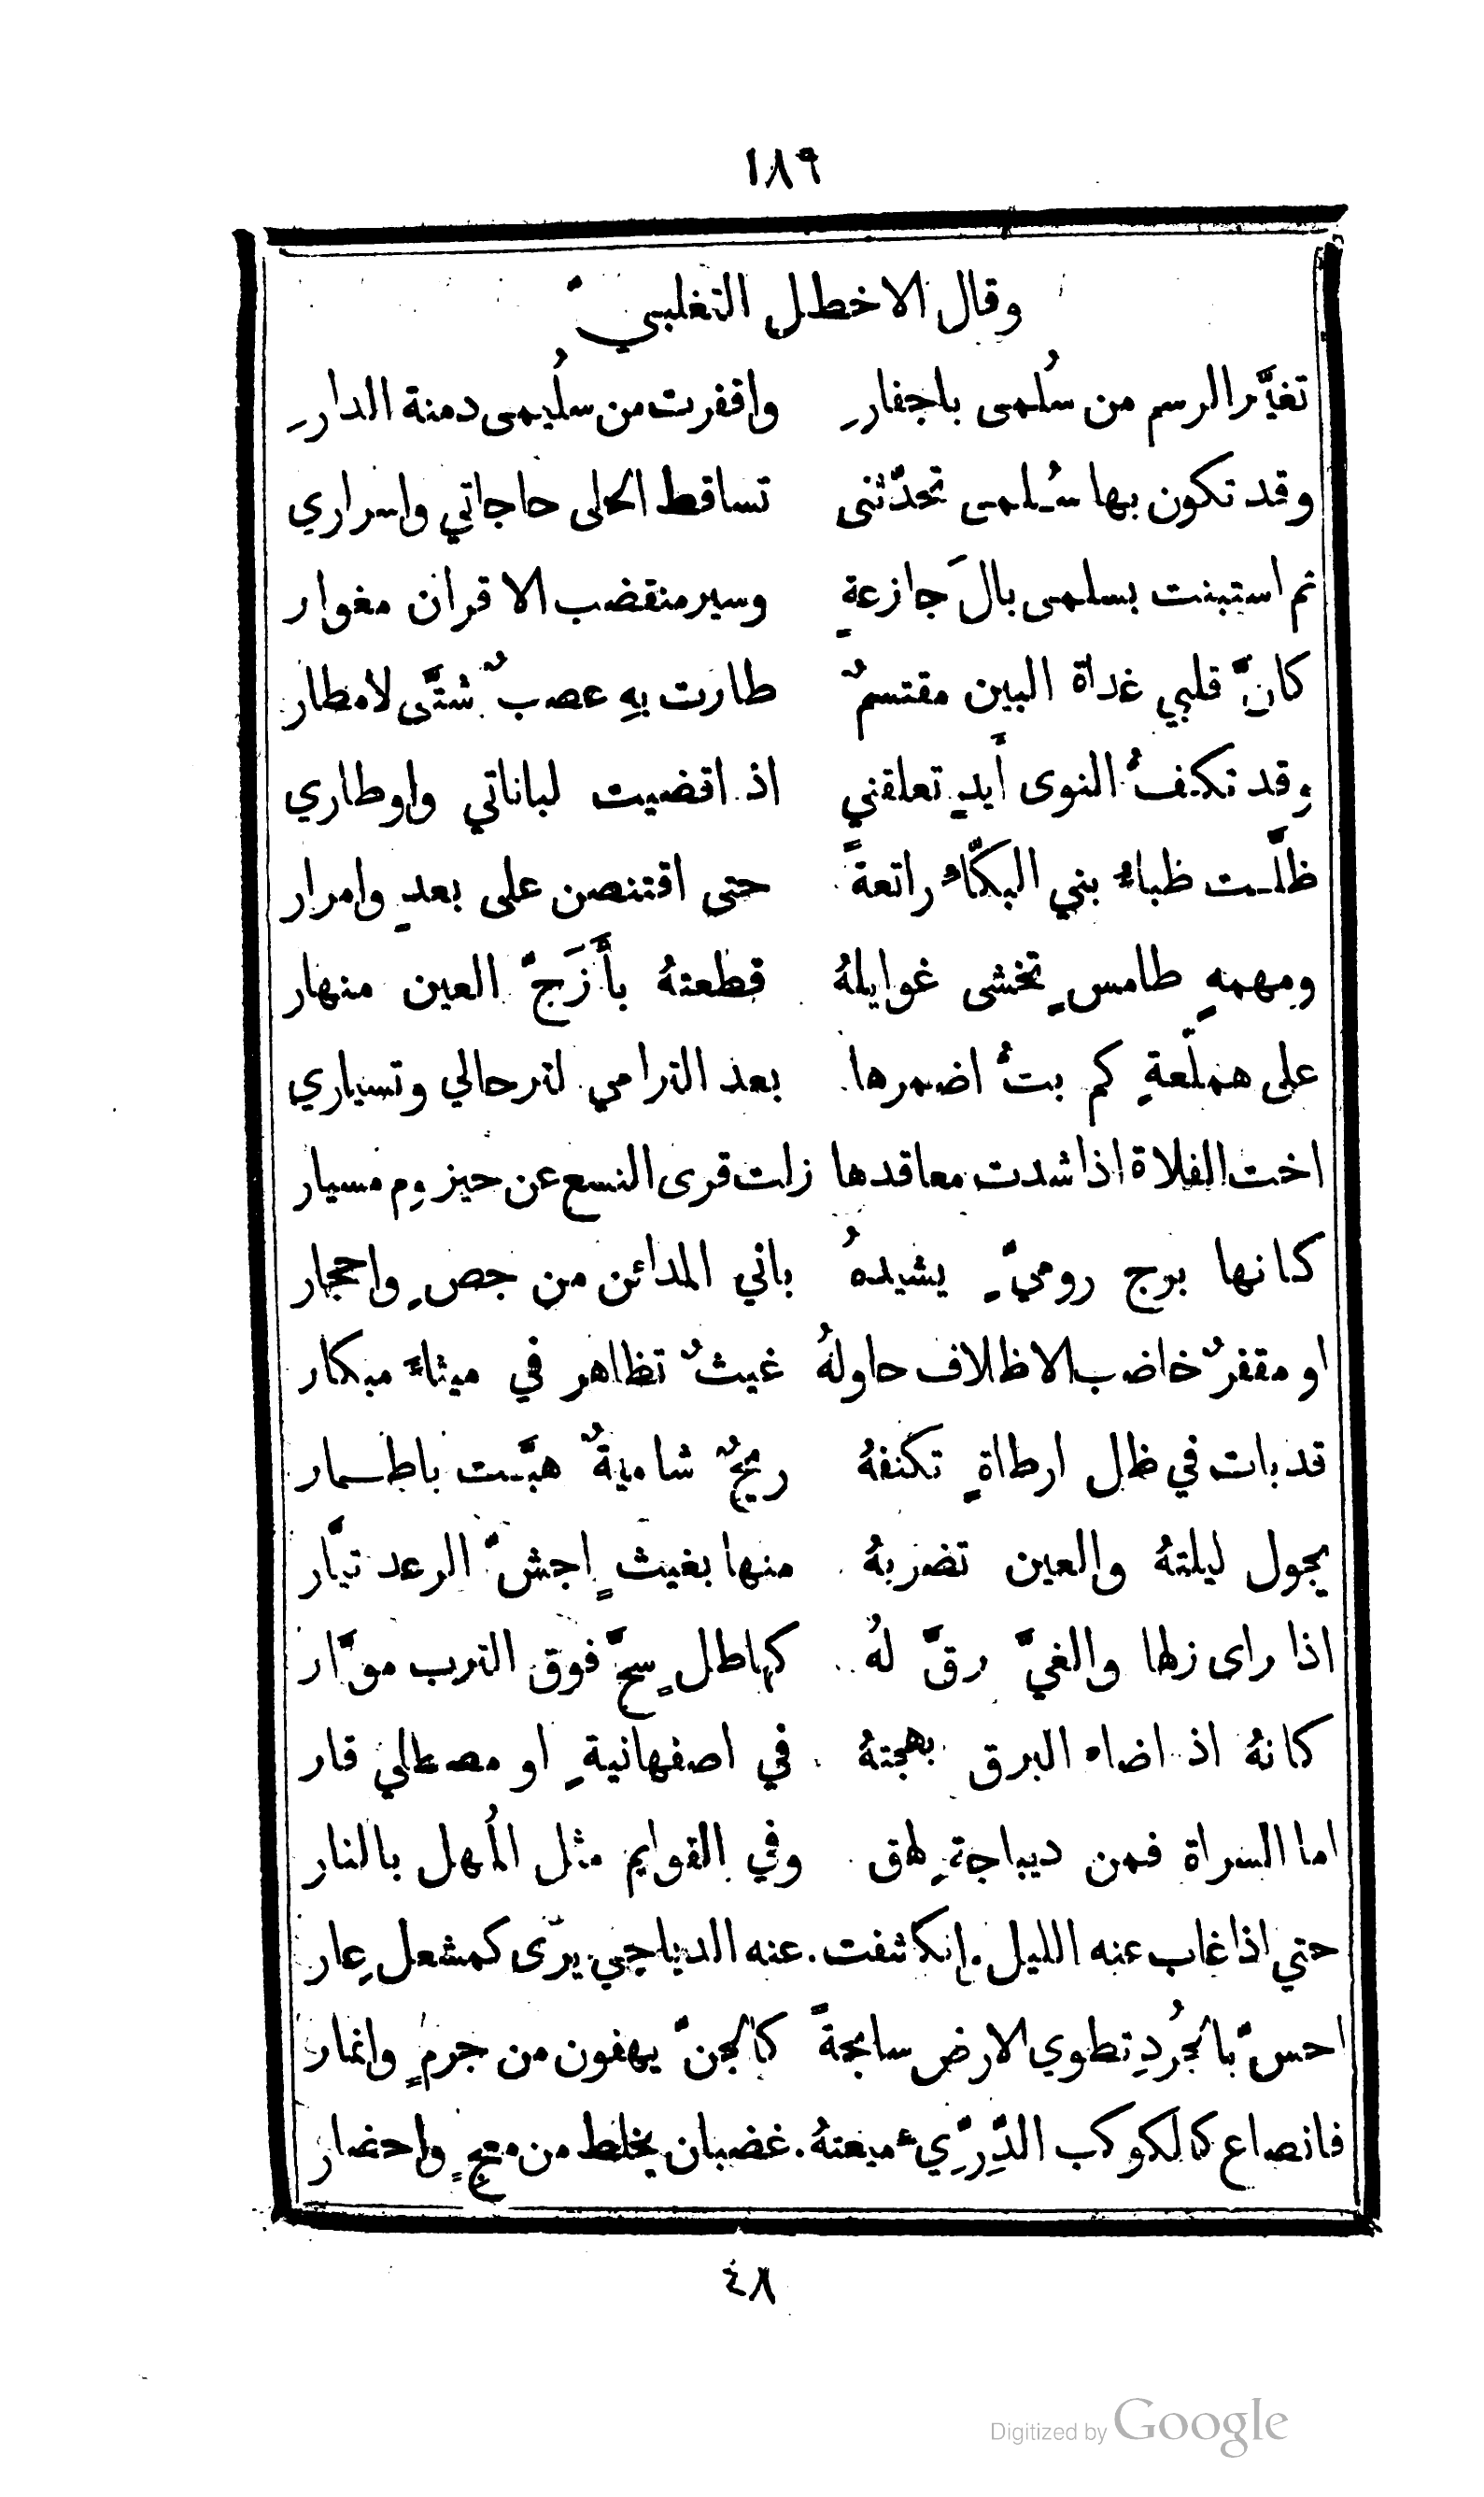 ١٨٩
وقال الاخطل التغلبيّ
تغيَّر الرسم من سُلمى باجفارِ واقفرت من سلُيمى دمنة الدارِ
وقد تكون بها سُلمى تحدّثنى تساقط الحلى حاجاتي واسراري
ثم استبنت بسلمى بالَ جازعةٍ وسير منقضب الاقران مغوار
كانَّ قلبي غداة البين مقتسمٌ طارت بهِ عصبٌ شتَّى لامطار
وقد تكفُّ النوى أيدٍ تعلقني اذ اقضيت لباناتي واوطاري
ظلّت ظباءُ بني البكّاء راتعةً حتى اقتنصن على بعدٍ وامرار
ومهمهٍ طامسٍ تخشى غوايلهُ قطعتهُ بأَزَجّ العين منهار
على هملّعةٍ كم بتُّ اضمرها بعد الترامي لترحالي وتسياري
اخت الفلاة اذا شدت معاقدها زلت قرى النسع عن حيزوم مسيار
كانها برج روميٍّ يشيدهُ باني المدائن من جصٍ واحجار
او مقفرٌ خاضب الاظلاف حاولهُ غيثٌ تظاهر في ميثاءَ مبكار
قد بات في ظل ارطاةٍ تكنفهُ ريحٌ شاميةٌ هبَّت باطسمار
يجول ليلتهُ والعين تضربهُ منها بغيثٍ اجشّ الرعد تيَّار
اذا راى زلها والغيَّ رقَّ لهُ كهاطلٍ سحَّ فوق الترب موَّار
كانهُ اذ اضاء البرق بهجتهُ في اصفهانيةٍ او مصطلي قار
اما السراة فمن ديباجةٍ لهق وفي القوايم مثل المُهل بالنار
حتي اذا غاب عنه الليل انكاشفت عنه الدياجي يرّى كمشعل عار
احسّ بالجُردِ تطوي الارض سابحةً كالجنّ يهفون من جرمٍ وانمار
فانصاع كالكوكب الدِّرِّيء ميعتهُ غضبان يخلط من معجٍ واحضار
٤٨
Digitized by Google